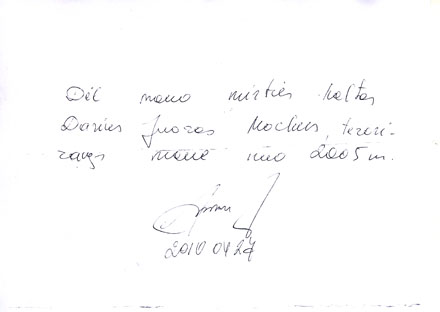 Dėl mano mirties kaltas
Darius Juozas Mockus, terori-
zavęs mane nuo 2005 m.
2010 04 27